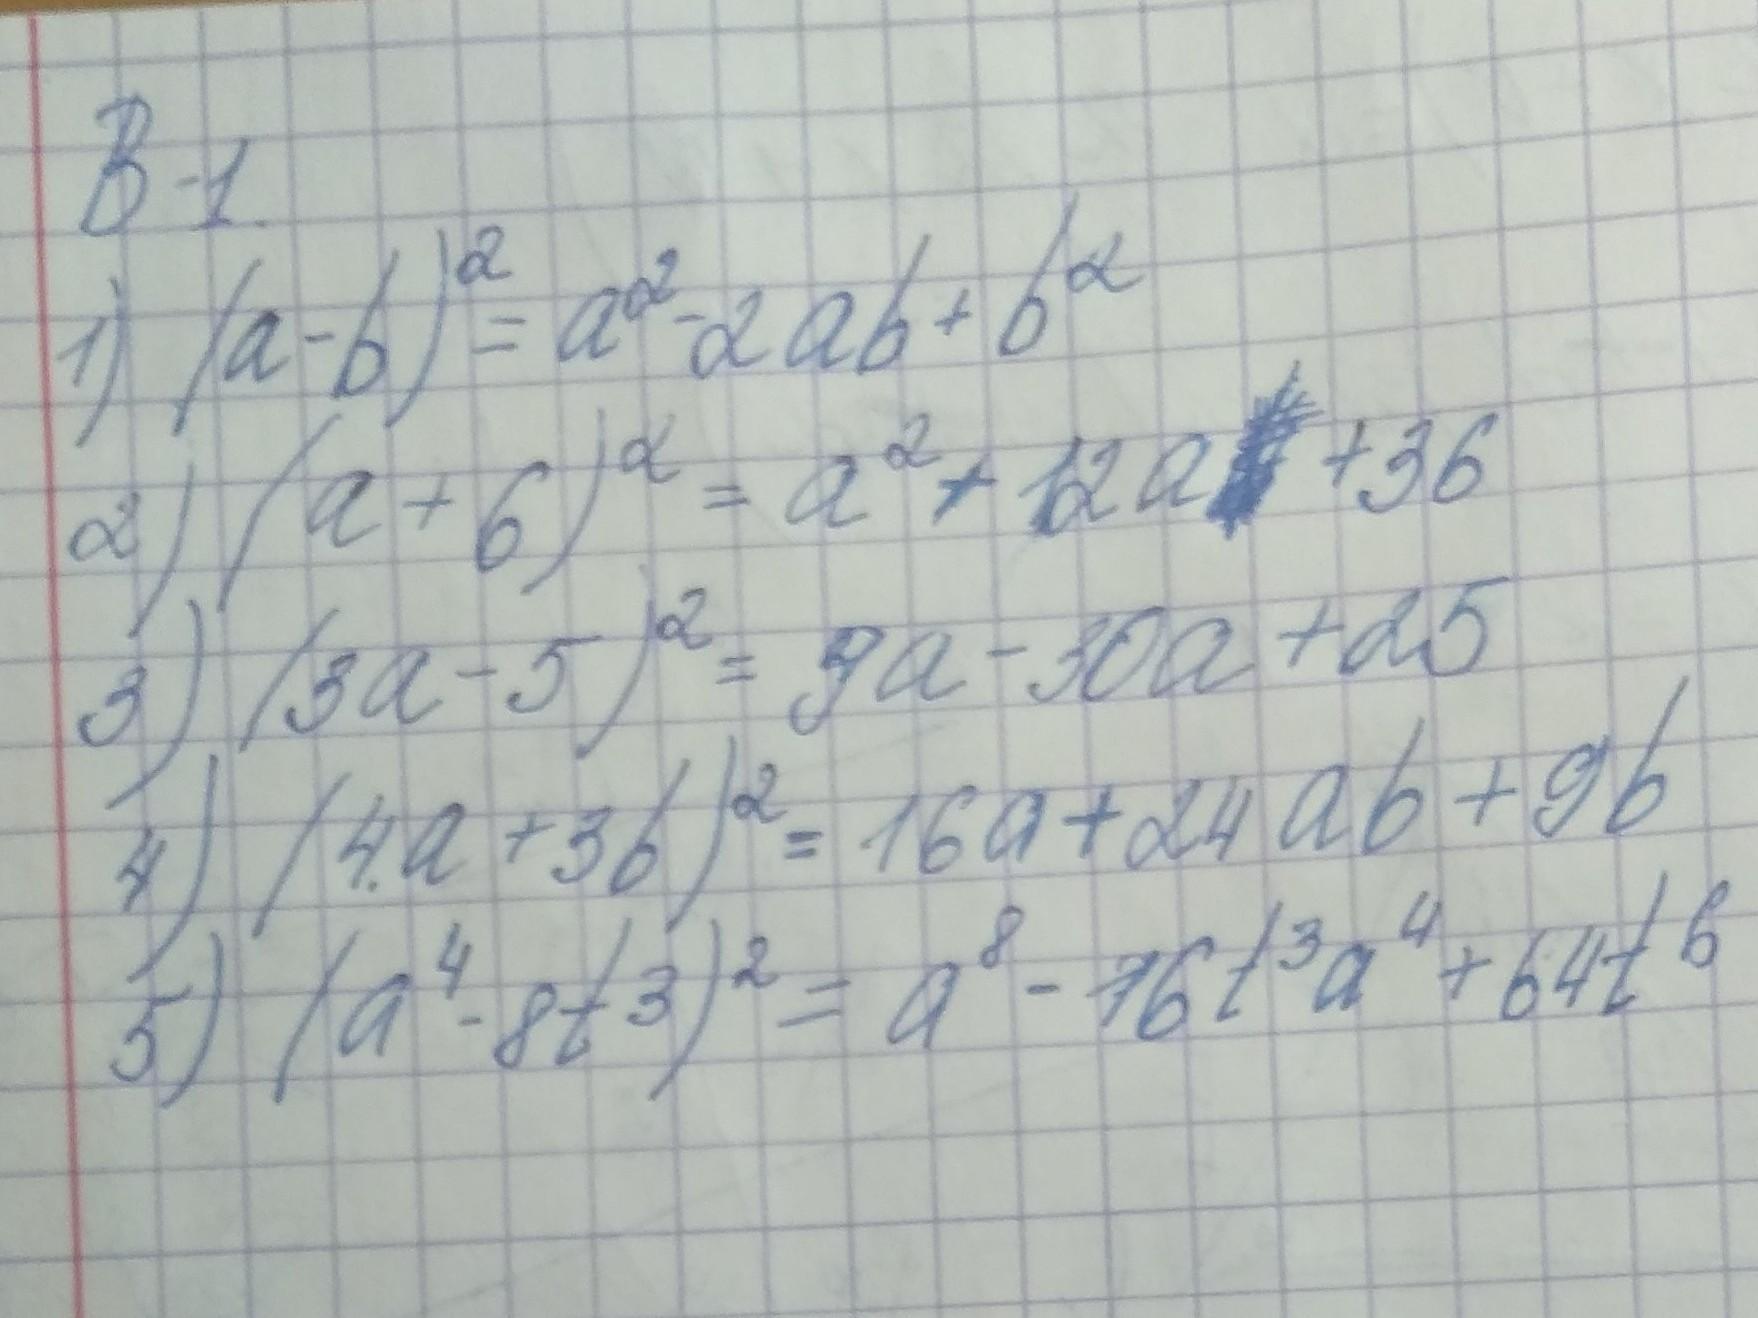 В-1.
1) (a-b)² = a²-2ab+b²
2) (a+6)² = a²+12a+36
3) (3a-5)² = 9a-30a+25
4) (4a+3b)² = 16a+24ab+9b
5) (a⁴-8t³)² = a⁸-16t³a⁴+64t⁶